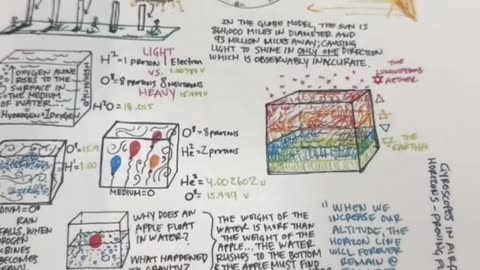 IN THE GLOBE MODEL, THE SUN IS
864,000 MILES IN DIAMETER AND
93 MILLION MILES AWAY; CAUSING
LIGHT TO SHINE IN ONLY ONE DIRECTION
WHICH IS OBSERVABLY INACCURATE.
OXYGEN ALONE
RISES TO THE
SURFACE IN
THE MEDIUM
OF WATER...
HYDROGEN+OXYGEN
H²=1 PROTON 1 Electron
LIGHT
VS.
HEAVY
O⁸=8 PROTONS 8 NEUTRONS
15.999 u
H²O = 18.015
THE
LUMINIFEROUS
AETHER
THE
EARTH
O⁸=15.9
H²=1.00
MEDIUM=O
O⁸=8 PROTONS
He²=2 PROTONS
He²=4.002602 u
O⁸ = 15.999 u
MEDIUM=O⁸
RAIN
FALLS, WHEN
BECOMES
HEAVY
WHY DOES AN
APPLE FLOAT
IN WATER?
WHAT HAPPENED
TO GRAVITY?
THE WEIGHT OF THE
WATER IS MORE THAN
THE WEIGHT OF THE
APPLE... THE WATER
RUSHES TO THE BOTTOM
& THE APPLE MUST FIND
"WHEN WE
INCREASE OUR
ALTITUDE, THE
HORIZON LINE
WILL FOREVER
REMAIN @
GYROSCOPES IN AIR
HORIZONS - PROVING